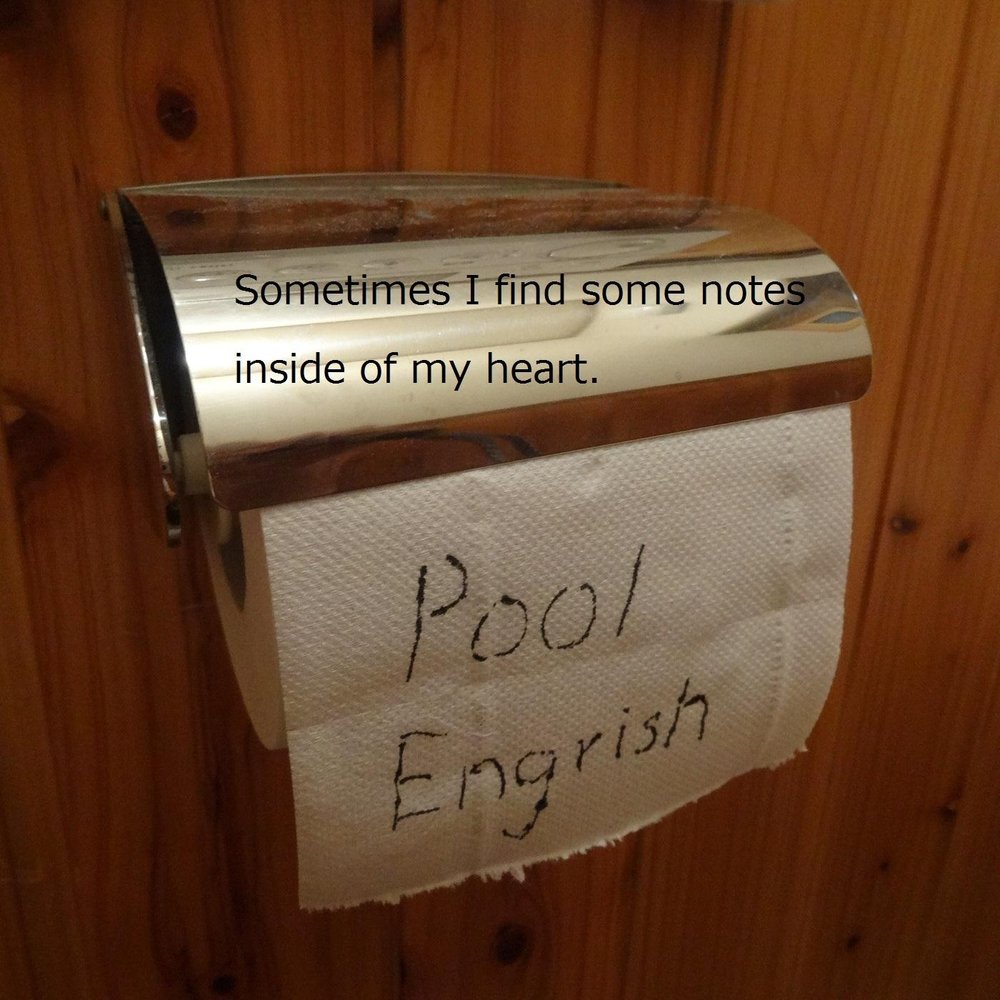 Sometimes I find some notes
inside of my heart.
Pool
Engrish